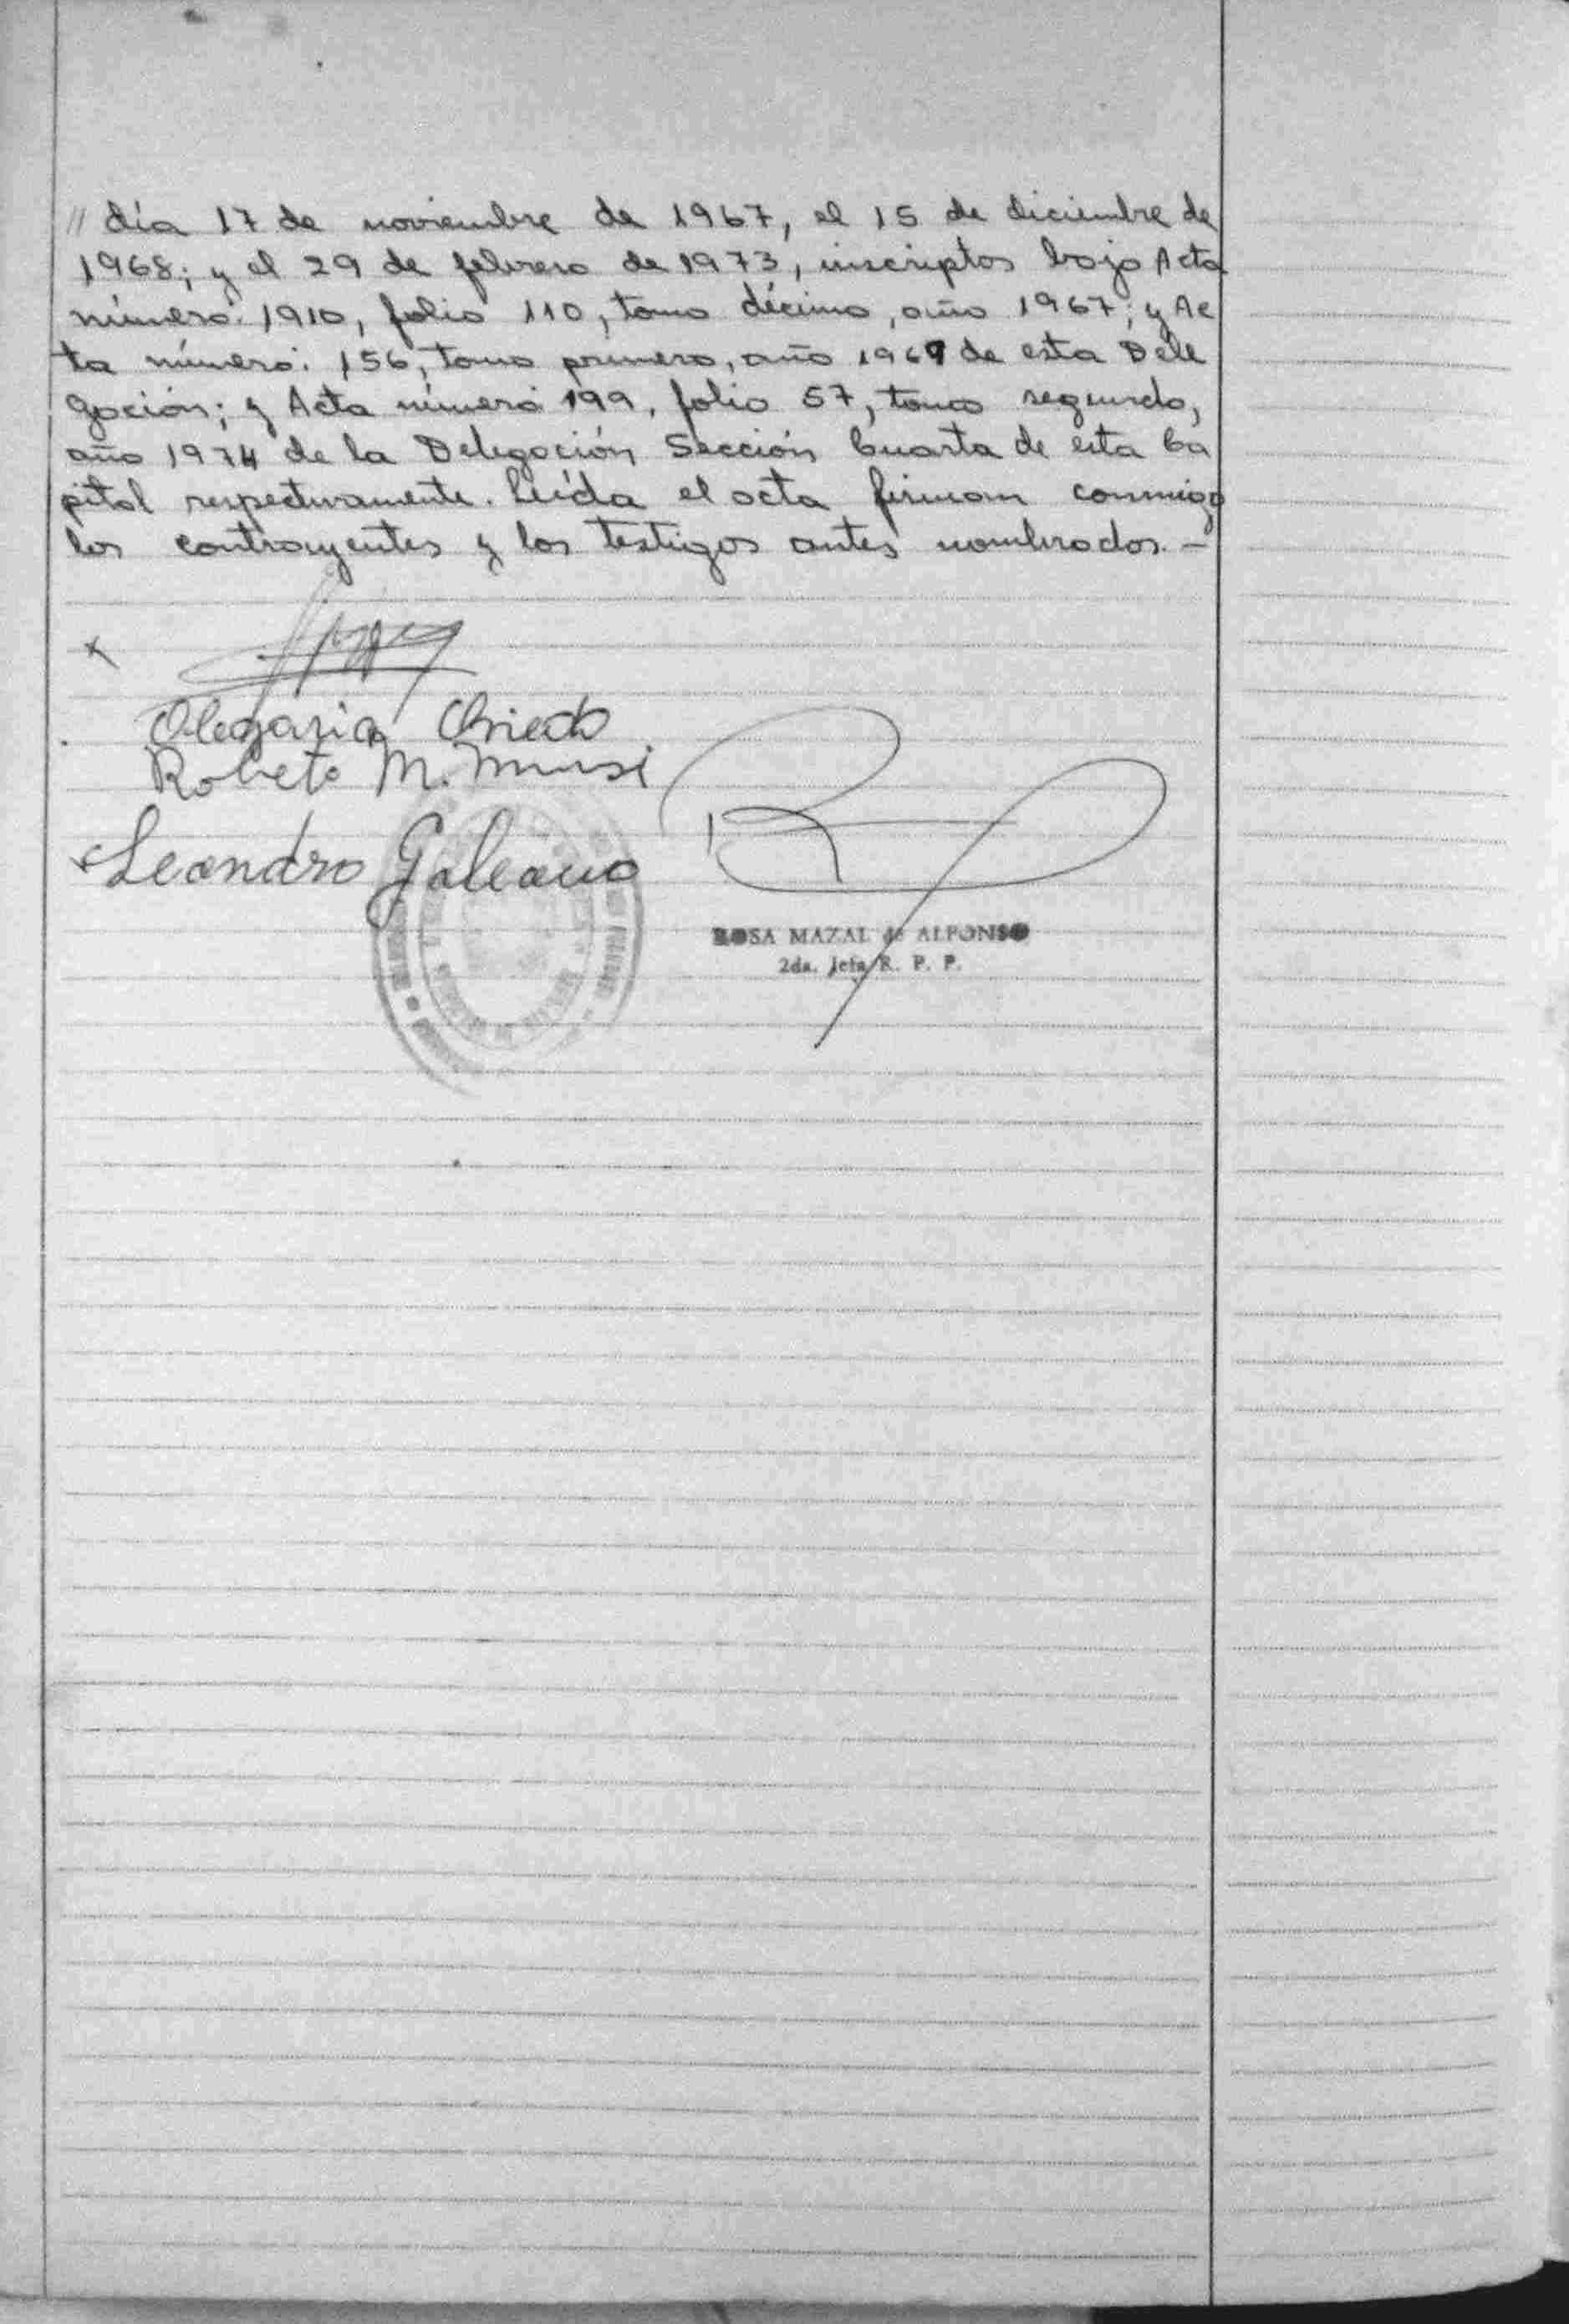 // día 17 de noviembre de 1967, el 15 de diciembre de
1968; y el 29 de febrero de 1973, inscriptos bajo Acta
número: 1910, folio 110, tomo décimo, año 1967; y Ac
ta número: 156, tomo primero, año 1969 de esta Dele
gación; y Acta número 199, folio 57, tomo segundo,
año 1974 de la Delegación Sección Cuarta de esta Ca
pital respectivamente. Leída el acta firman conmigo
los contrayentes y los testigos antes nombrados. -
x
Olegaria Oviedo
Roberto M.
Leandro Galeano
ROSA MAZAL de ALFONSO
2da. Jefa R. P. P.